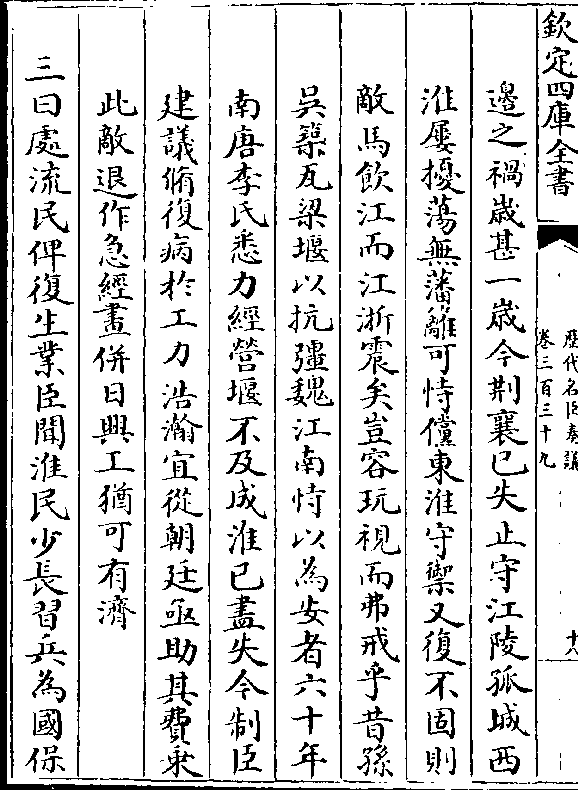 欽定四庫全書
歷代名臣奏議
卷三百三十九
十八
邊之禍歲甚一歲今荆襄已失止守江陵孤城西
淮屢擾蕩無藩籬可恃儻東淮守禦又復不固則
敵馬飲江而江浙震矣豈容玩視而弗戒乎昔孫
吳築瓦梁堰以抗彊魏江南恃以為安者六十年
南唐李氏悉力經營堰不及成淮已盡失今制臣
建議脩復病於工力浩瀚宜從朝廷亟助其費乗
此敵退作急經畫併日興工猶可有濟
三曰處流民俾復生業臣聞淮民少長習兵為國保